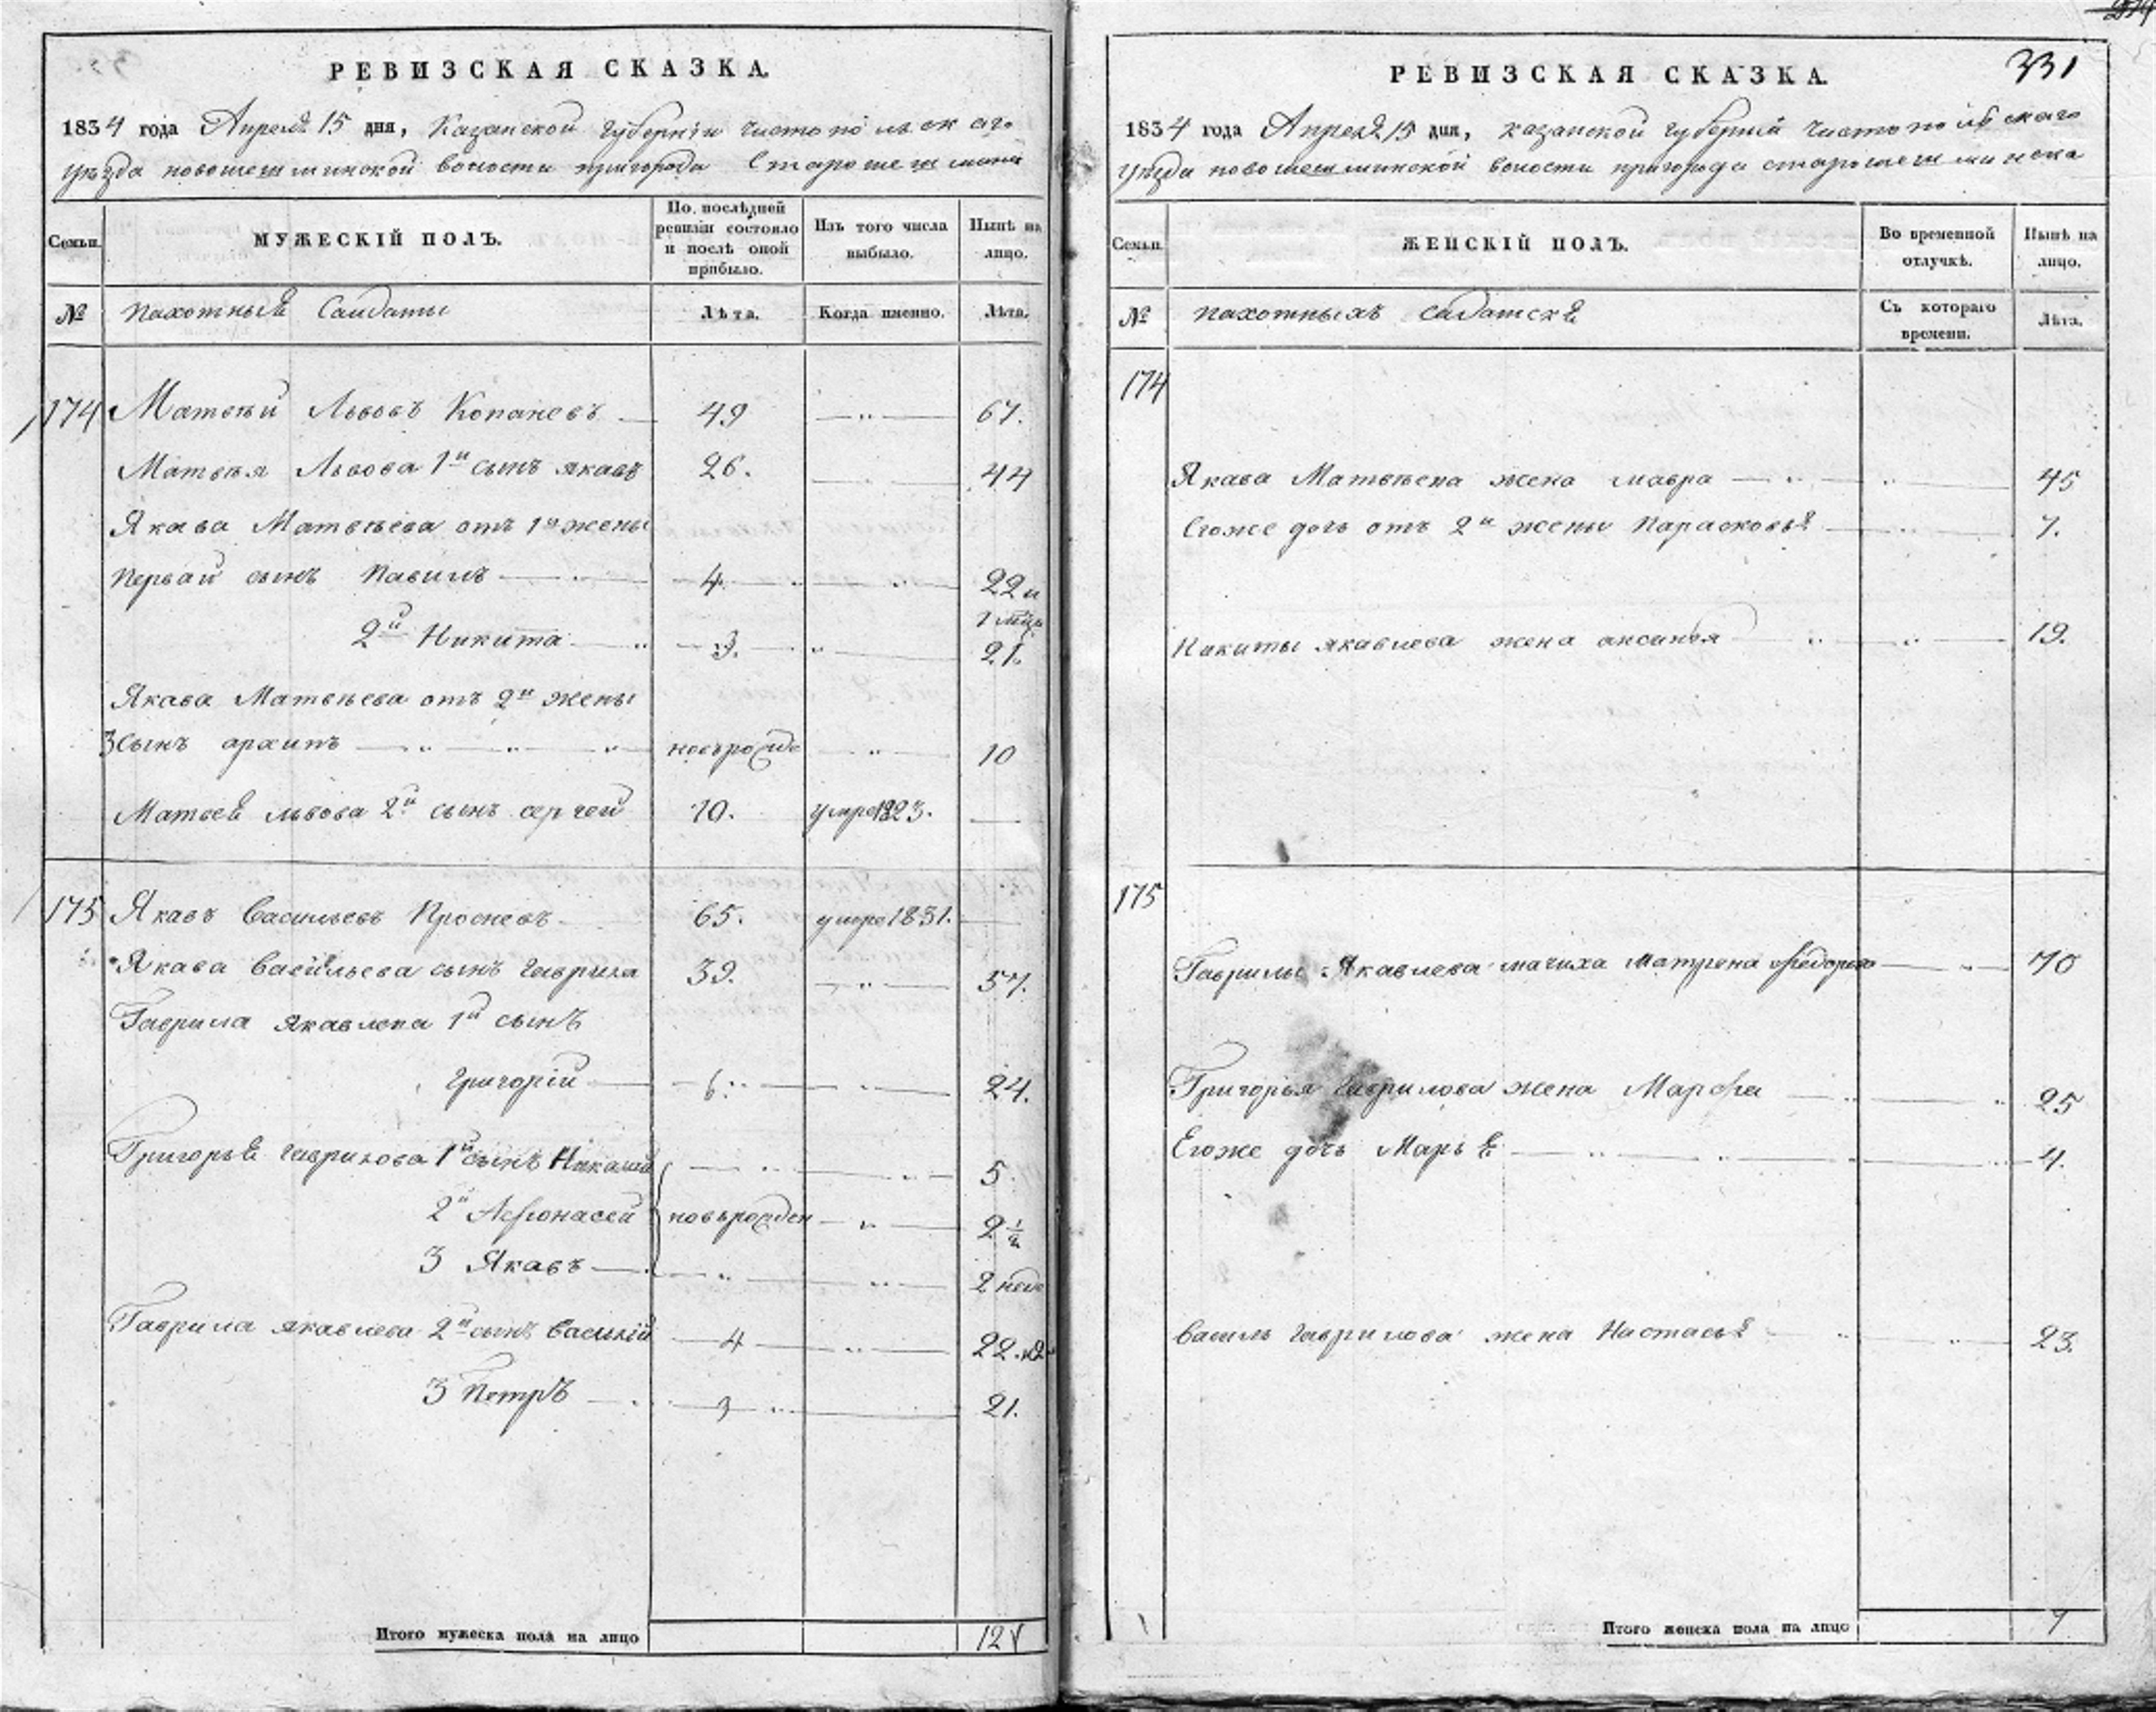 РЕВИЗСКАЯ СКАЗКА.
1834 года Апреля 15 дня, Казанской губернiи Чистопольскаго
уѣзда новошешминской волости пригорода Старошешминска
Семьи.
МУЖЕСКІЙ ПОЛЪ.
По послѣдней ревизіи состояло и послѣ оной прибыло.
Изъ того числа выбыло.
Нынѣ на лицо.
№
пахотныя Салдаты
Лѣта.
Когда именно.
Лѣта.
174 Матвѣй Львовъ Копаневъ 49 67.
Матвѣя Львова 1й сынъ якавъ 26. 44
Якава Матвѣева отъ 1й жены
первай сынъ Павилъ 4. 22 и
7 мѣц
2й Никита 3. 21.
Якава Матвѣева отъ 2й жены
3 сынъ архипъ новърожде 10
Матвея львова 2й сынъ сергей 10. умре 1823.
175 Якавъ Васильевъ Проневъ 65. умре 1831.
Якава Васильева сынъ гаврила 39. 57.
Гаврила Якавлева 1й сынъ
григорій 6. 24.
Григорья гаврилова 1й сынъ Никалай 5.
2й Афонасей новърожден 2 1/2
3 Якавъ 2 неде
Гаврила якавлева 2й сынъ василій 4 22.
3 Петръ 3 21.
Итого мужеска пола на лицо 12
331
РЕВИЗСКАЯ СКАЗКА.
1834 года Апреля 15 дня, казанской губерніи Чистопольскаго
уѣзда новошешминской волости пригорода старошешминска
Семьи.
ЖЕНСКІЙ ПОЛЪ.
Во временной отлучкѣ.
Нынѣ на лицо.
№
пахотныхъ салдатскя
Съ котораго времени.
Лѣта.
174
Якава Матвѣева жена мавра 45
Егоже дочь отъ 2й жены Парасковья 7.
Никиты якавлева жена аксинья 19.
175
Гаврилы Якавлева мачиха Матрена Федорова 70
Григорья гаврилова жена Марфа 25
Егоже дочь Марья 4.
василья гаврилова жена Настасья 23.
Итого женска пола на лицо 7